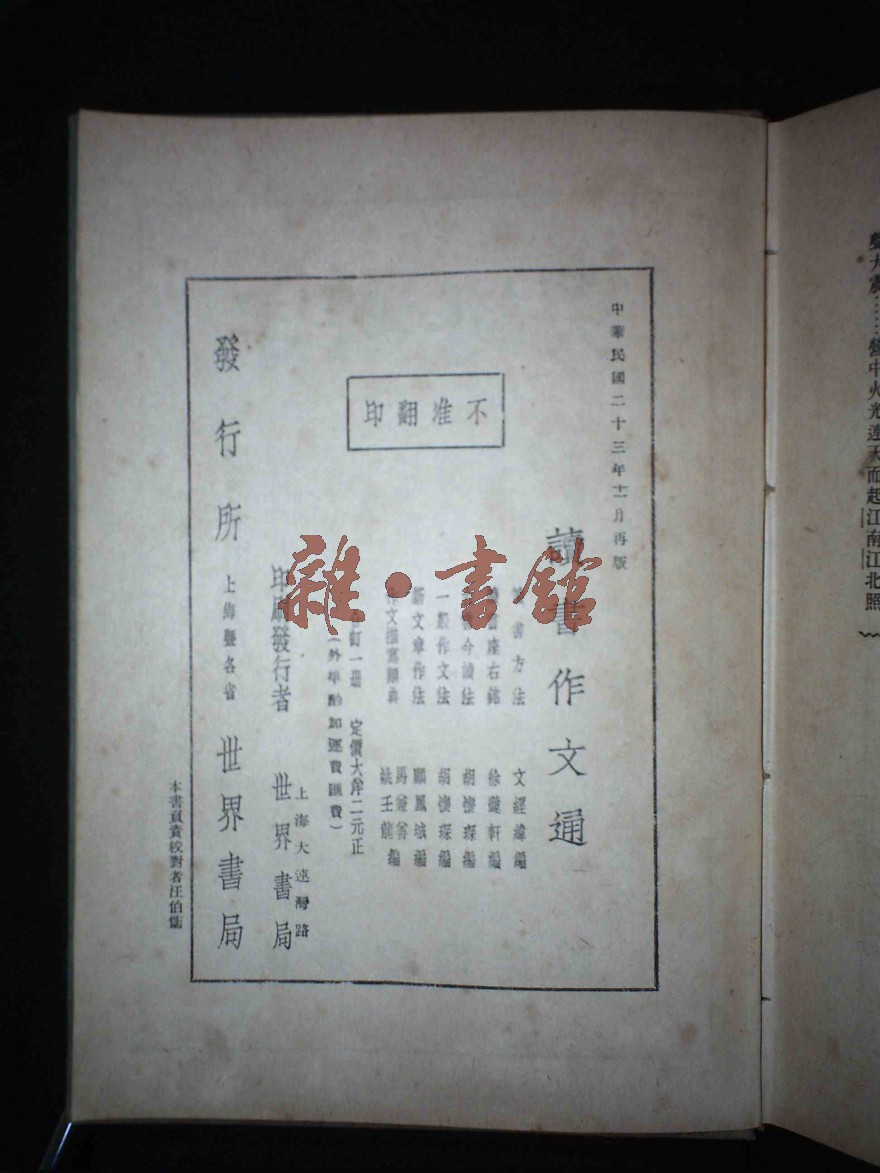 中華民國二十三年十一月再版
讀書作文通
書方法 文經緯編
書座右銘 徐蘧軒編
今讀法 胡懷琛編
一般作文法 胡懷琛編
新文章作法 顧鳳城編
作文描寫辭典 馬兼善 姚壬龍 編
不准翻印
訂一冊 定價大洋二元正
(外埠酌加運費匯費)
印刷發行者 上海大連灣路 世界書局
發行所 上海曁各省 世界書局
本書負責校對者汪伯
雜·書館
營中火光連天而起江南江北照